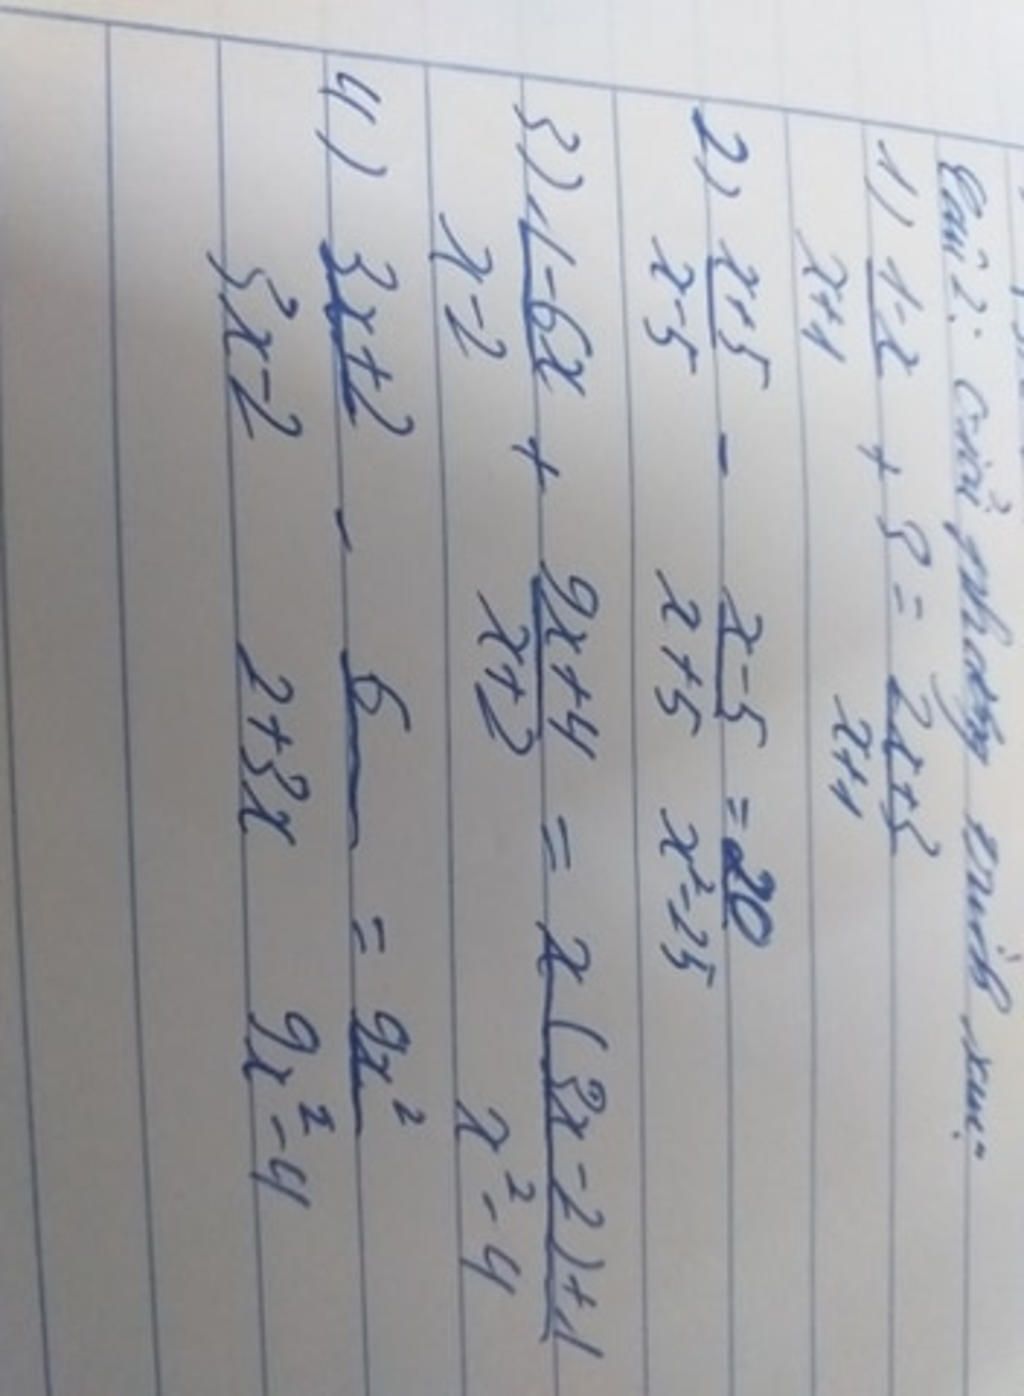 Bài 2: Giải phương trình sau:
1) 1-x/x+1 + 3 = 2x+3/x+1
2) x+5/x-5 - x-5/x+5 = 20/x²-25
3) 1-6x/x-2 + 9x+4/x+2 = x(3x-2)+1/x²-4
4) 3x+2/3x-2 - 6/2+3x = 9x²/9x²-4